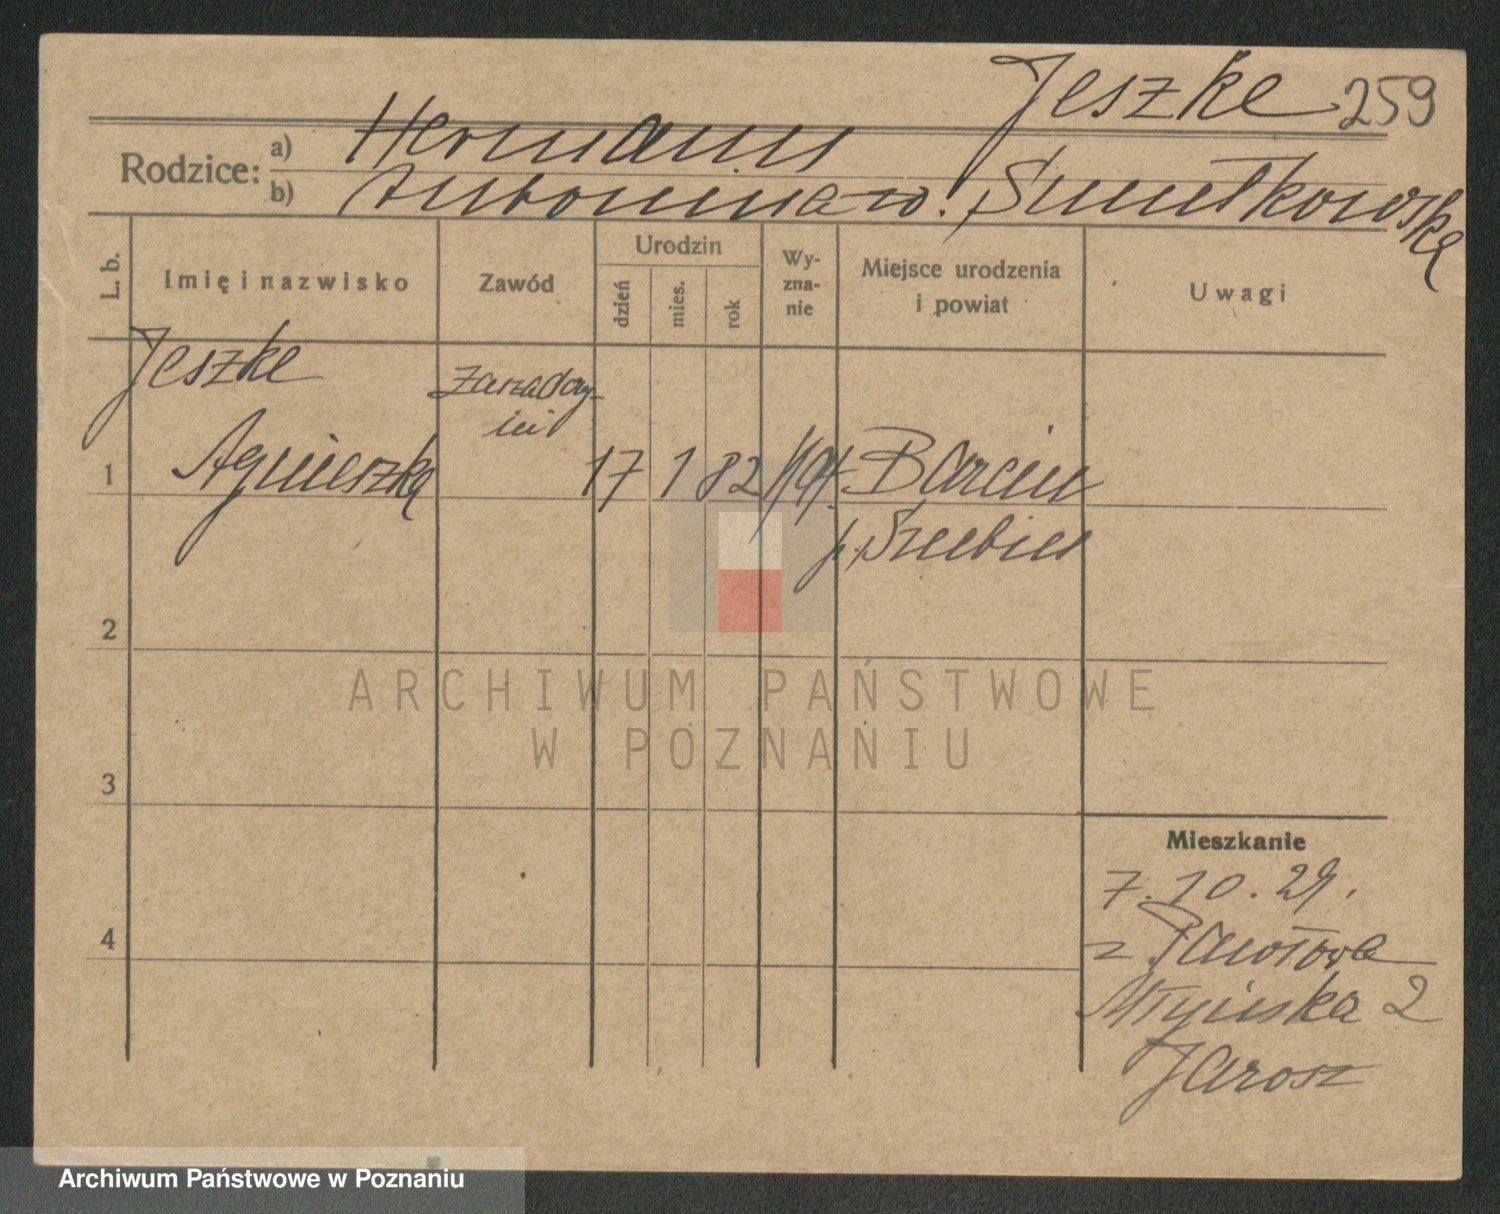 Jeszke 259
Rodzice: a) Hermann
b) Antonina w. Smułkowska
L. b.
Imię i nazwisko
Zawód
Urodzin
dzień
mies.
rok
Wy-
zna-
nie
Miejsce urodzenia
i powiat
Uwagi
Jeszke
1 Agnieszka 17 1 82 Barcin
p. Szubin
2
3
4
Mieszkanie
7.10.29.
z Pawłowa
Młyńska 2
Jarosz
ARCHIWUM PAŃSTWOWE
W POZNANIU
Archiwum Państwowe w Poznaniu